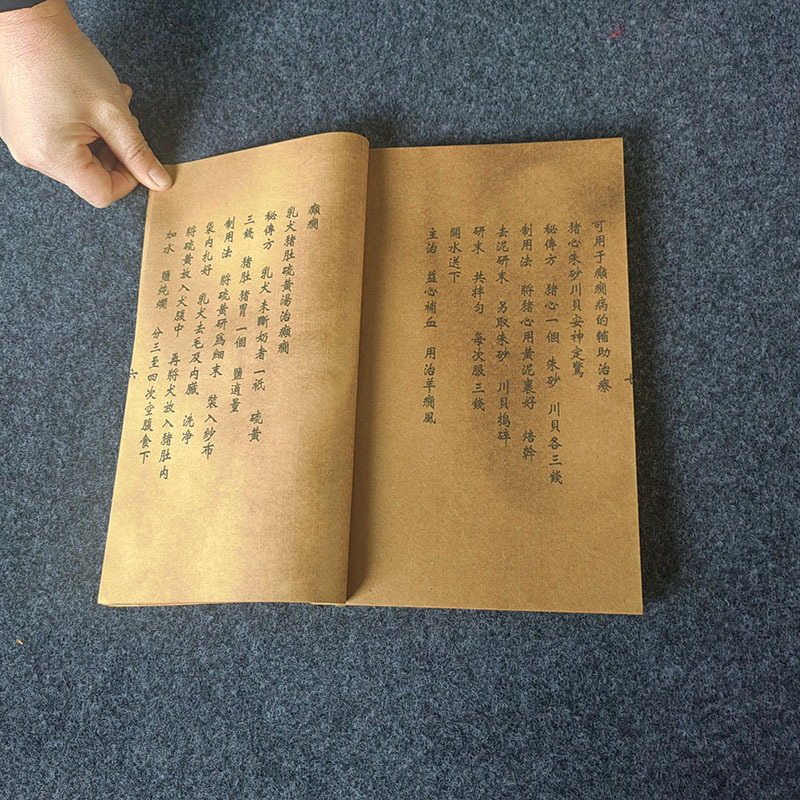 癲癇
乳犬猪肚硫黄湯治癲癇
秘傳方 乳犬未斷奶者一衹 硫黄
三錢 猪肚 猪胃 一個 鹽適量
制用法 將硫黄研爲細末 裝入紗布
袋内扎好 乳犬去毛及内臟 洗净
將硫黄放入犬腹中 再將犬放入猪肚内
加水 鹽炖爛 分三至四次空腹食下
六
可用于癲癇病的輔助治療
猪心朱砂川貝安神定驚
秘傳方 猪心一個 朱砂 川貝各三錢
制用法 將猪心用黄泥裹好 焙幹
去泥研末 另取朱砂 川貝搗碎
研末 共拌匀 每次服三錢
開水送下
主治 益心補血 用治羊癇風
七